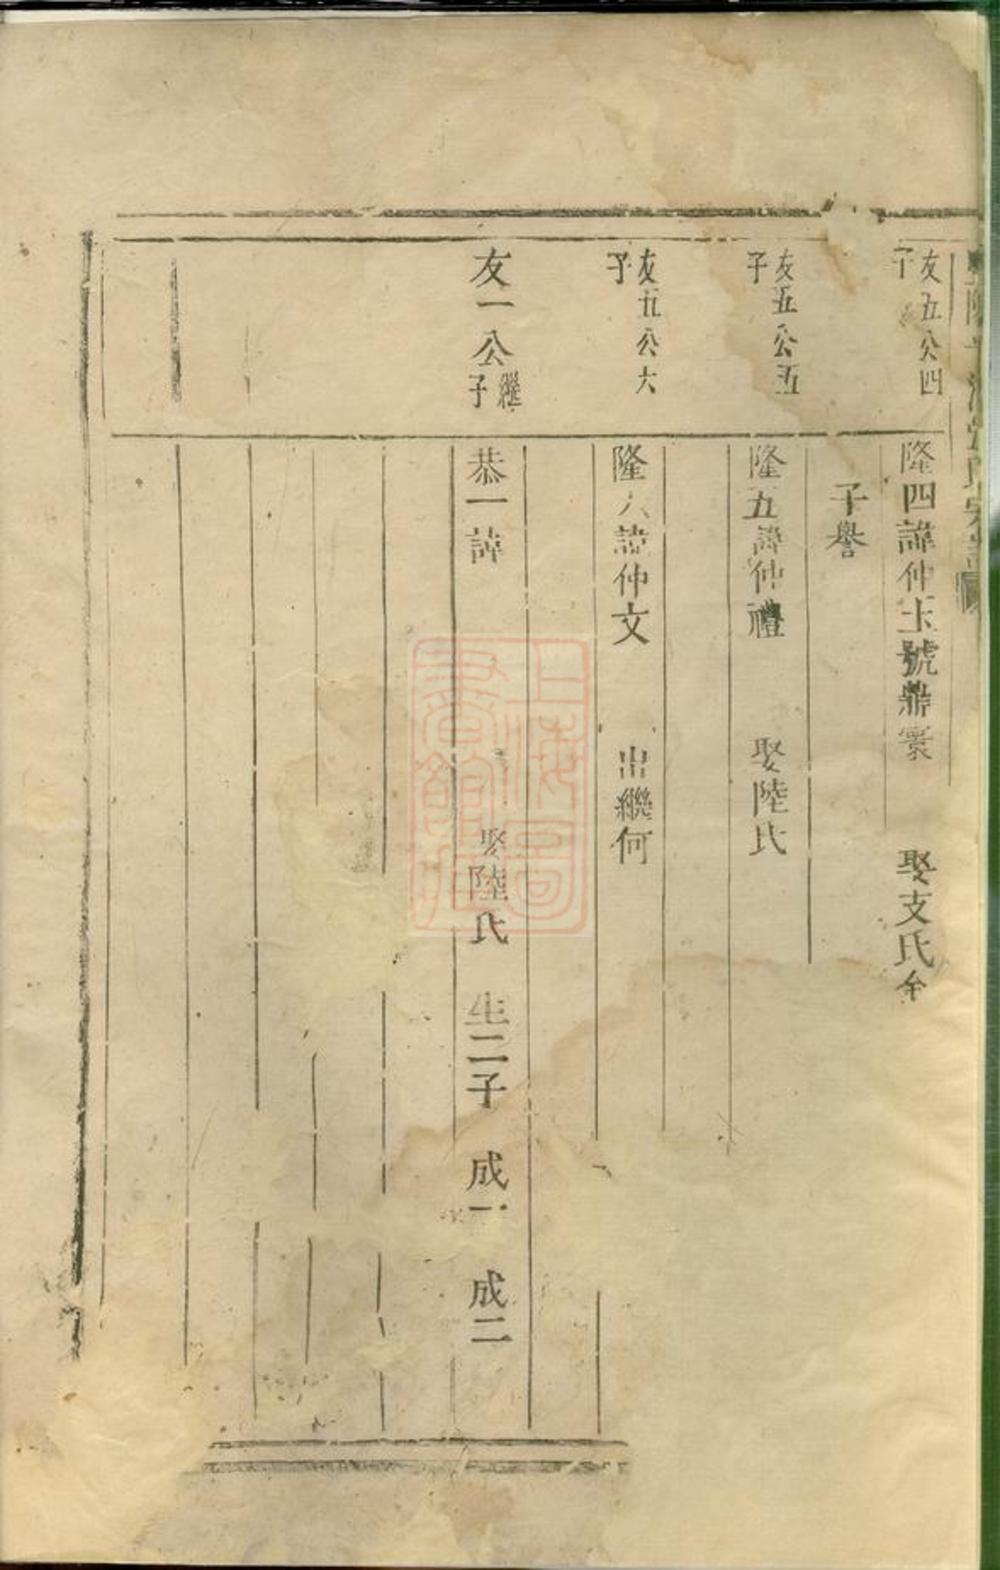 友五公四
子
隆四諱仲玉號鼎寰　娶支氏　全
子譽
友五公五
子
隆五諱仲禮　娶陸氏
友五公六
子
隆六諱仲文　出繼何
友一公繼
子
恭一諱　娶陸氏　生二子　成一　成二
上海圖
書館藏